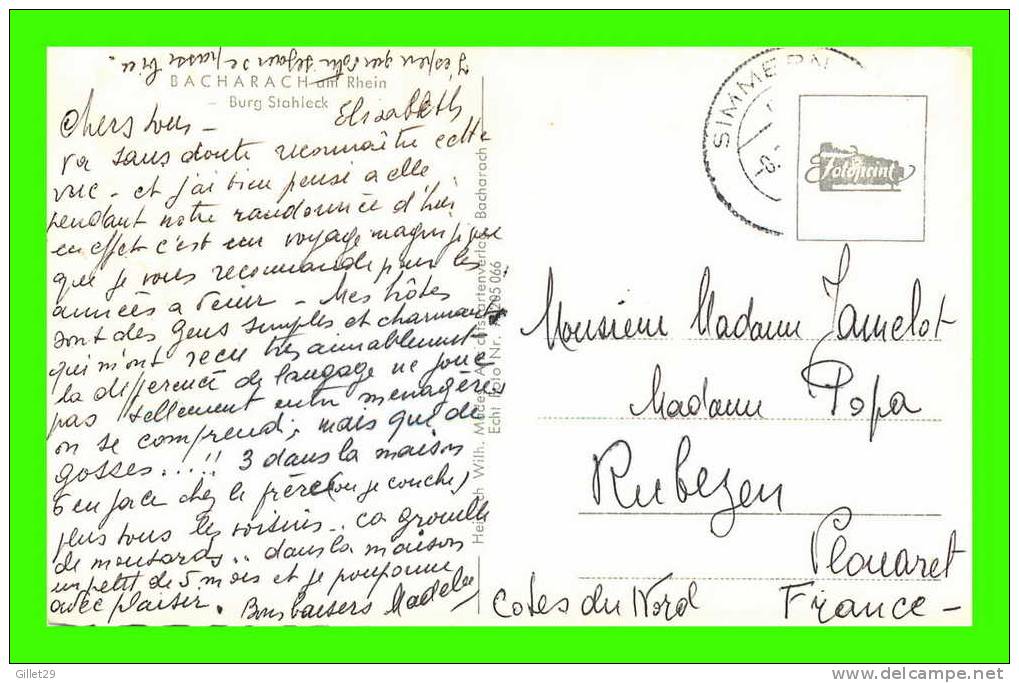 J'espère que votre séjour se passe bien.
BACHARACH am Rhein
– Burg Stahleck
Chers tous – Elisabeth
va sans doute reconnaître cette
vue – et j'ai bien pensé à elle
pendant notre randonnée d'hier
en effet c'est un voyage magnifique
que je vous recommande pour les
années à venir – Mes hôtes
sont des gens simples et charmants
qui m'ont reçu très aimablement
la différence de langage ne joue
pas tellement entre ménagères
on se comprend, mais que de
gosses...!! 3 dans la maison
6 en face chez le frère (où je couche)
plus tous les voisins.. ça grouille
de moutards.. dans la maison
un petit de 5 mois et je pouponne
avec plaisir. Bons baisers Madele
Heinrich Wilh. Ansichtskartenverlag Bacharach
Echt Foto Nr. 205 066
SIMMERN
Fotoprint
Monsieur Madame Jamelot
Madame Popa
Rubezen
Plouaret
Cotes du Nord France –
Gillet29
www.delcampe.net